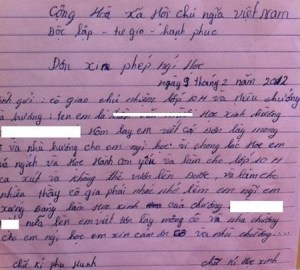 Cộng Hòa xã Hội chủ ngĩa việt Nam
Độc lập - tự gio - hạnh phúc
Đơn xin phép ngỉ Học
ngày 9 tháng 2 năm 2012
kính gửi : cô giáo chủ nhiệm lớp 10H và nhiều chưởng
là tên em là Học xinh trường
Hôm lay em viết cá đơn lày mong
và nhà hưởng cho em ngỉ học vì chong lúc Học em
ngịch và Học Hành còn yếu và làm cho lớp 10H
ca xút và không thể vươn lên Được, và làm cho
nhiên thầy cô gia phải nhắc nhở lắm em ngĩ em
xứng Đáng làm Học xinh của chường
nữa lên em viết đơn lày mong cô và nhà chường
cho em ngỉ học em xin cảm ơn cô và nhà chường
chữ kí phụ huynh chữ kí Học xinh